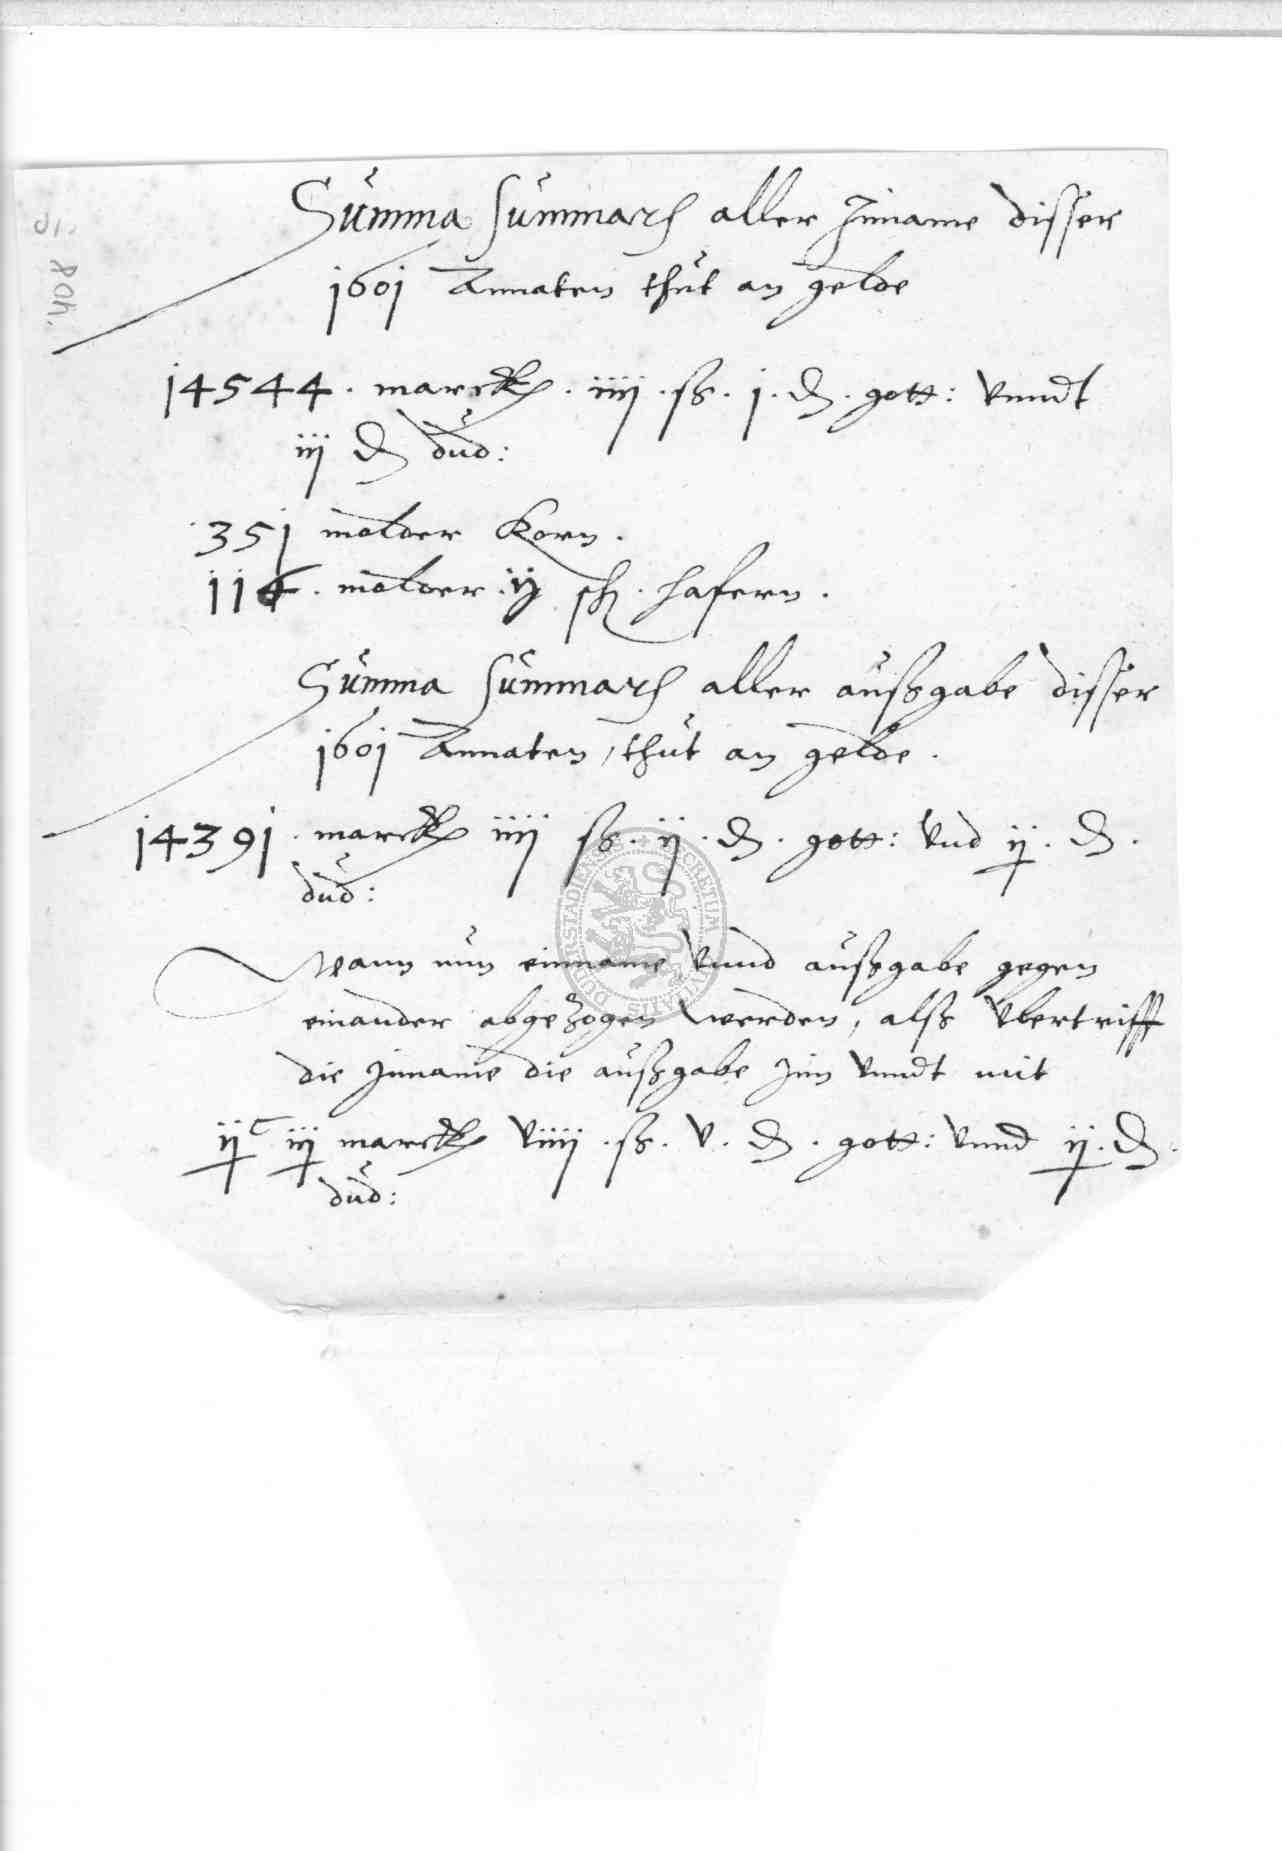 Summa Summarum aller Inname disser
1601 Annaten thut an gelde
14544 . marck . iiij . ß . j . d . gott : vnndt
iij d dud :
351 molder Korn .
114 . molder . ij . sch . hafern .
Summa Summarum aller außgabe disser
1601 Annaten , thut an gelde .
14391 . marck iiij ß . ij . d . gott : vnd ij . d .
dud :
Wann nun einname vnnd außgabe gegen
einander abgezogen werden , alß vbertriff
die Inname die außgabe Inn vnndt mit
ij c iij marck viiij . ß . v . d . gott : vnnd ij . d .
dud :
408
SECRETUM CIVITATIS DUDERSTADIENSIS